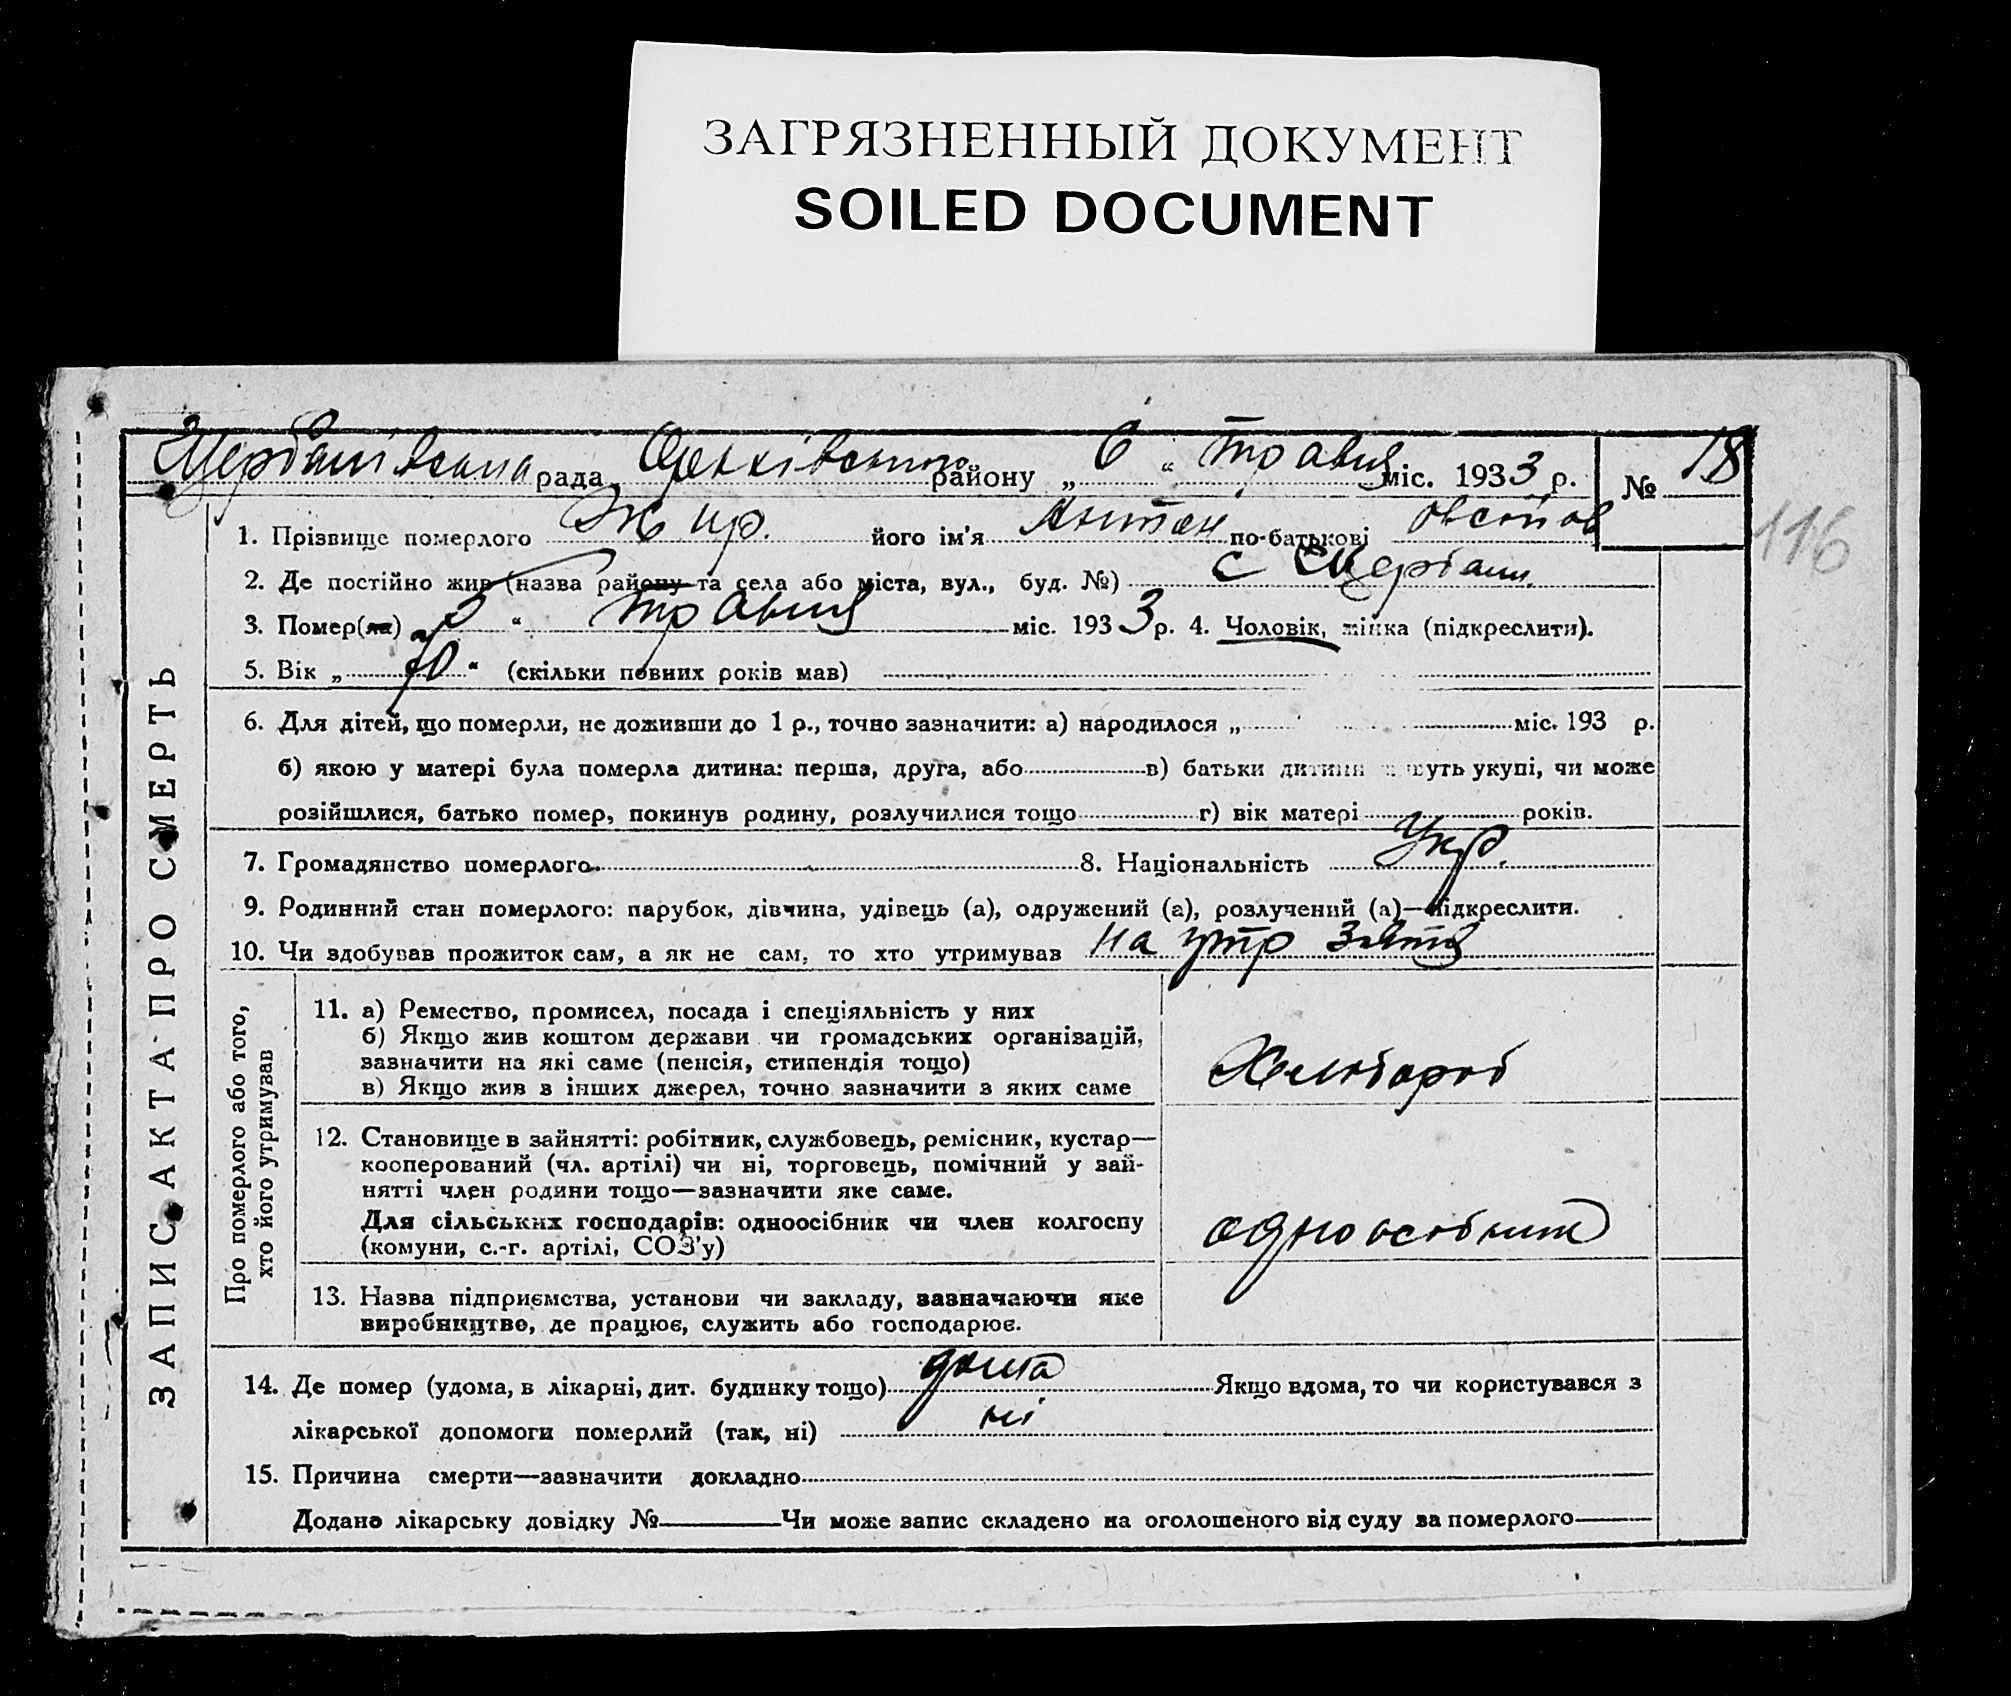 ЗАГРЯЗНЕННЫЙ ДОКУМЕНТ
SOILED DOCUMENT
Щербанівська рада районy „ 6 “ травня міс. 1933 р. № 18
116
1. Прізвище померлого Жир. його ім'я Антон по-батькові
2. Де постійно жив (назва району та села або міста, вул., буд. №) с Щербани.
3. Помер(ла) „ 5 “ травня міс. 1933 р. 4. Чоловік, жінка (підкреслити).
5. Вік „ 70 “ (скільки повних років мав)
6. Для дітей, що померли, не доживши до 1 р., точно зазначити: а) народилося „ міс. 193 р.
б) якою у матері була померла дитина: перша, друга, або в) батьки дитини живуть укупі, чи може
розійшлися, батько помер, покинув родину, розлучилися тощо г) вік матері років.
7. Громадянство померлого 8. Національність Укр.
9. Родинний стан померлого: парубок, дівчина, удівець (а), одружений (а), розлучений (а)—підкреслити.
10. Чи здобував прожиток сам, а як не сам, то хто утримував на утр зятя
ЗАПИС АКТА ПРО СМЕРТЬ
Про померлого або того,
хто його утримував
11. а) Ремество, промисел, посада і спеціяльність у них
б) Якщо жив коштом держави чи громадських організацій,
зазначити на які саме (пенсія, стипендія тощо)
в) Якщо жив з інших джерел, точно зазначити з яких саме
Хлібороб
12. Становище в зайнятті: робітник, службовець, ремісник, кустар—
кооперований (чл. артілі) чи ні, торговець, помічний у зай-
нятті член родини тощо—зазначити яке саме.
Для сільських господарів: одноосібник чи член колгоспу
(комуни, с.-г. артілі, СОЗ'у)
одноосібник
13. Назва підприємства, установи чи закладу, зазначаючи яке
виробництво, де працює, служить або господарює.
14. Де помер (удома, в лікарні, дит. будинку тощо) дома Якщо вдома, то чи користувався з
лікарської допомоги померлий (так, ні) ні
15. Причина смерти—зазначити докладно
Додано лікарську довідку № Чи може запис складено на оголошеного від суду за померлого